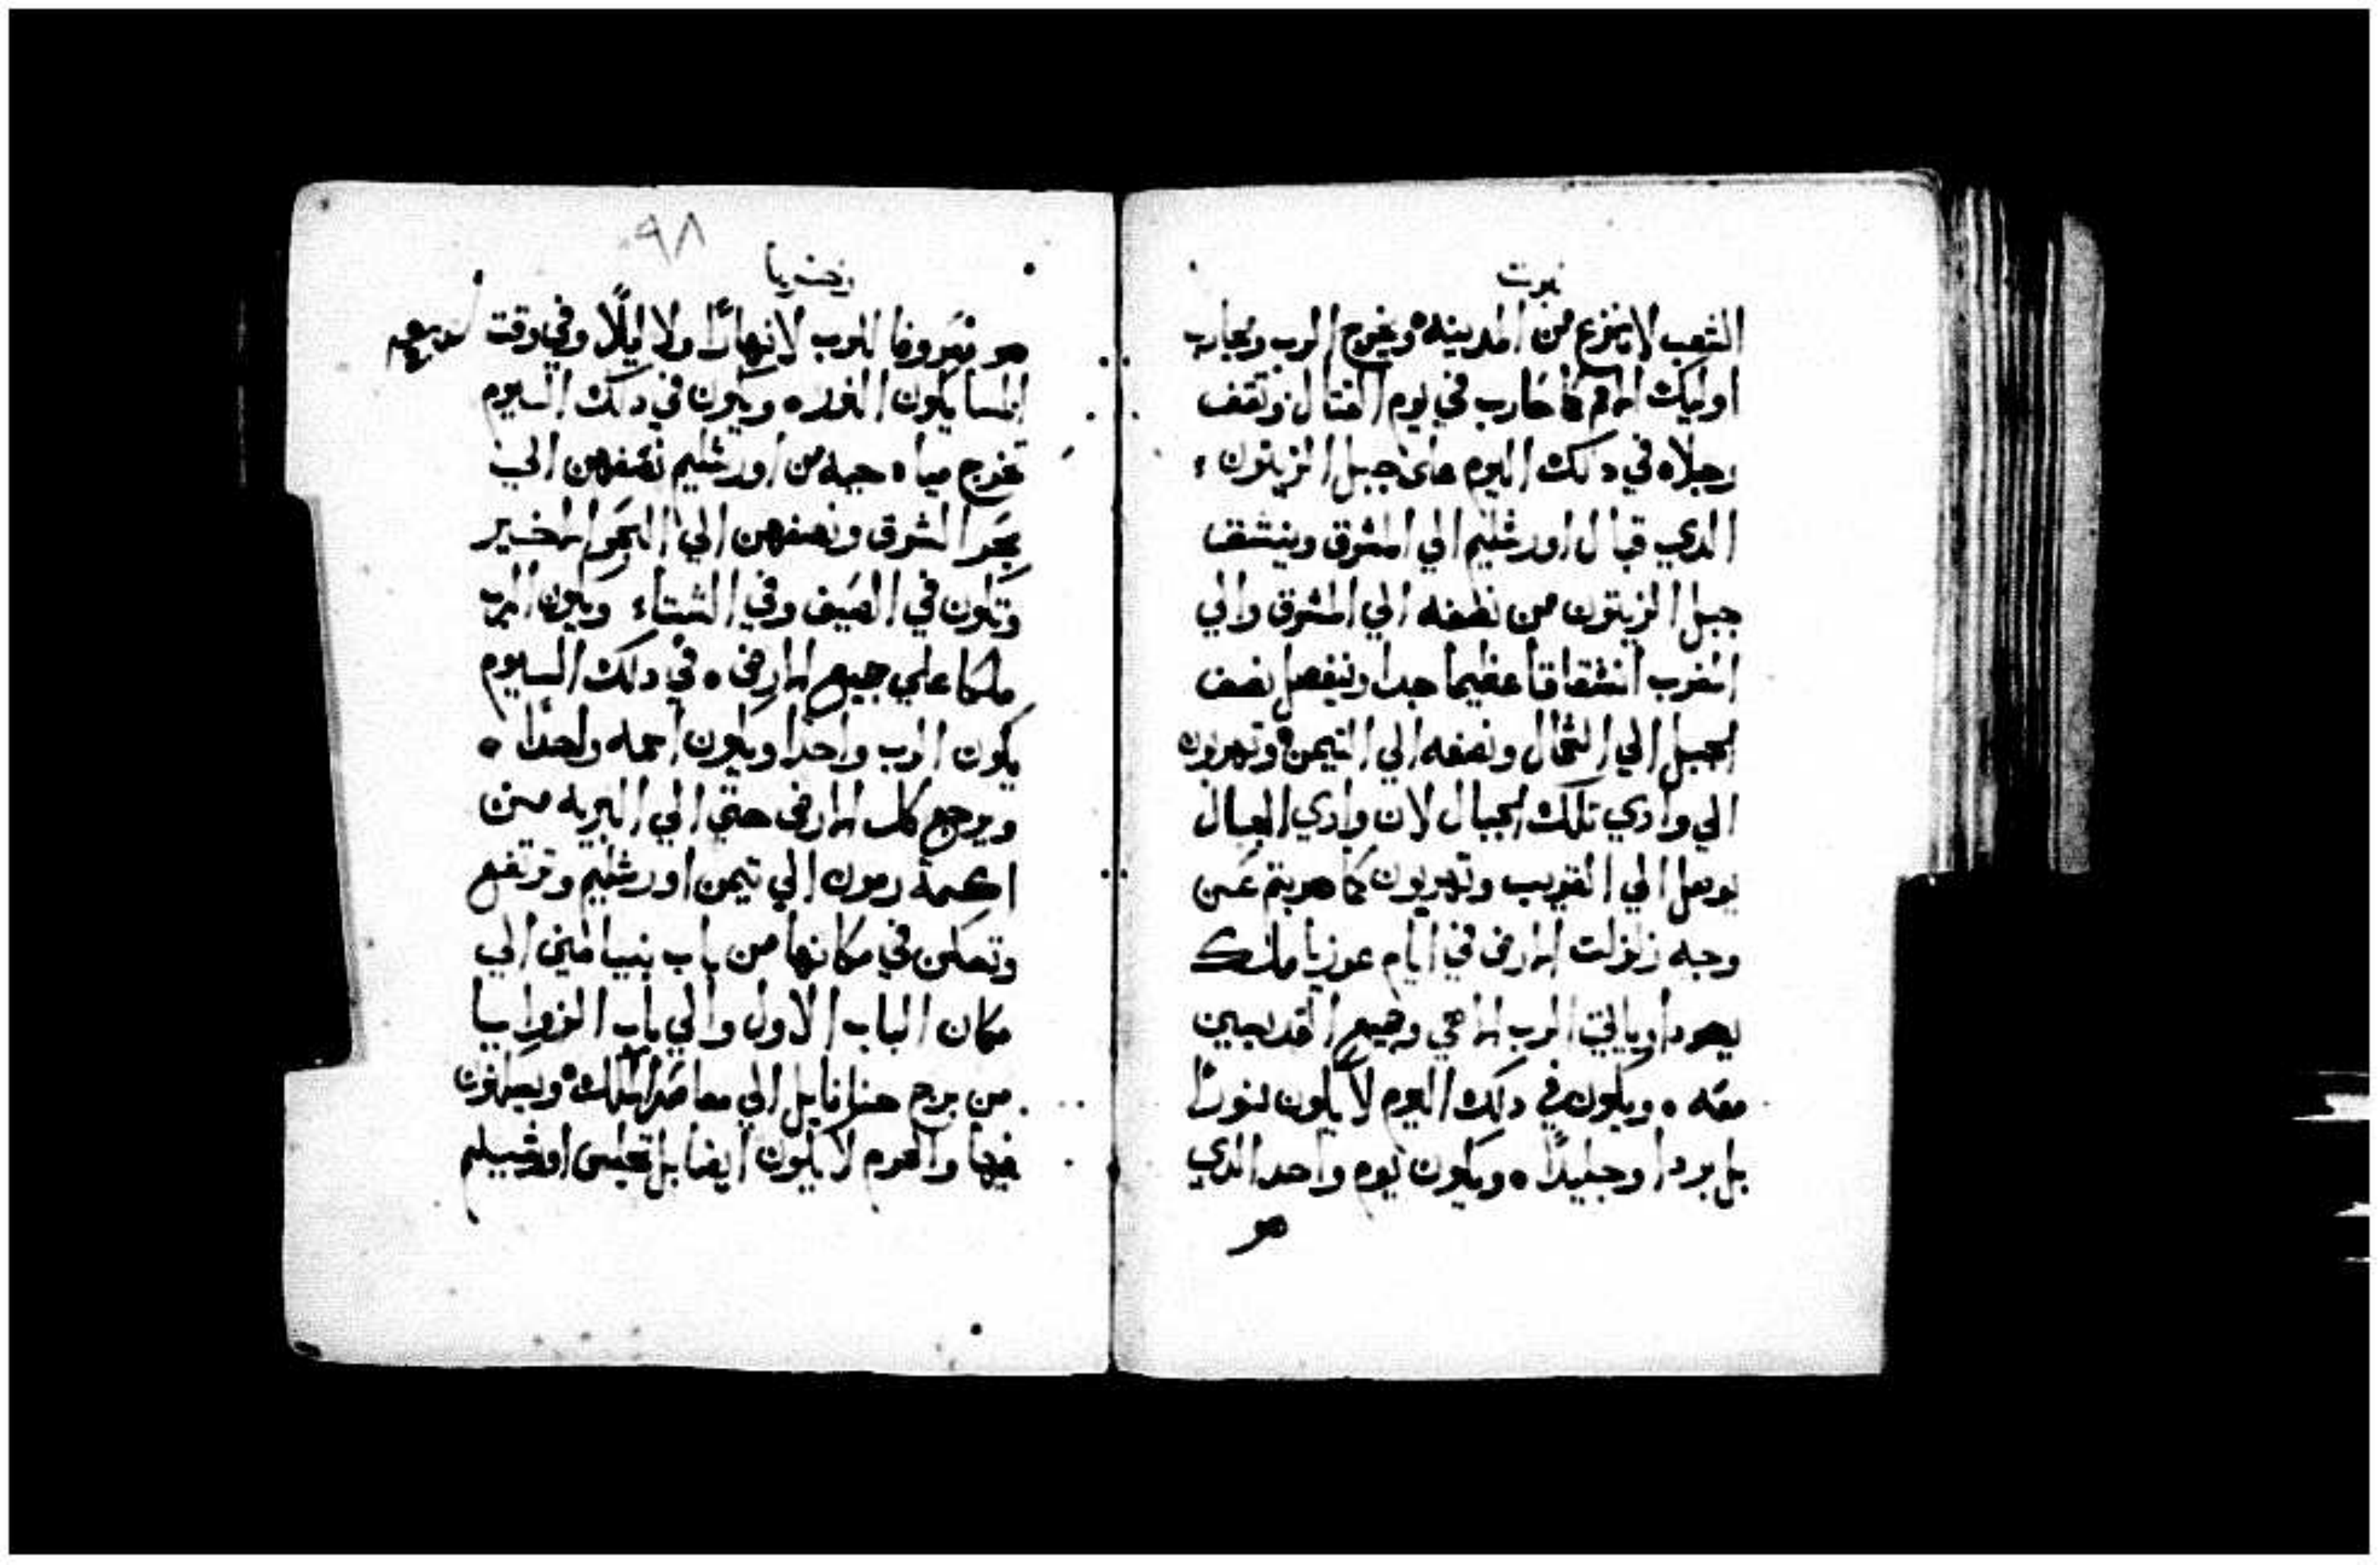 نبوت
الشعب لا ينزع من المدينه ويخرج الرب ويحارب
اوليك الامم كما حارب في يوم القتال وتقف
رجلاه في دلك اليوم على جبل الزيتون
الدي قبال اورشليم الي المشرق وينشق
جبل الزيتون من نصفه الي المشرق والي
المغرب انشقاقا عظيما جدا وينفصل نصف
الجبل الي الشمال ونصفه الي التيمن وتهربون
الي وادي تلك الجبال لان وادي الجبال
يوصل الي القريب وتهربون كما هربتم عن
وجه زلزلت الارض في ايام عوزيا ملك
يهودا وياتي الرب الاهي وجميع القديسين
معه ويكون في دلك اليوم لا يكون نورا
بل بردا وجليدا ويكون يوم واحد الدي
هو
٩٨
زخريا
هو معروفا للرب لا نهارا ولا ليلا وفي وقت
المسا يكون النور ويكون في دلك اليوم
تخرج مياه حيه من اورشليم نصفهن الي
بحر الشرق ونصفهن الي البحر الاخير
وتكون في الصيف وفي الشتاء ويكون الرب
ملكا علي جميع الارض في دلك اليوم
يكون الرب واحدا ويكون اسمه واحدا
ويرجع كل الارض حتي الي البريه من
اكمة رمون الي تيمن اورشليم وترتفع
وتسكن في مكانها من باب بنيامين الي
مكان الباب الاول والي باب الزوايا
من برج هنانايل الي معاصر الملك ويسكنون
فيها والحرم لا يكون ايضا بل تجلس اورشيلم